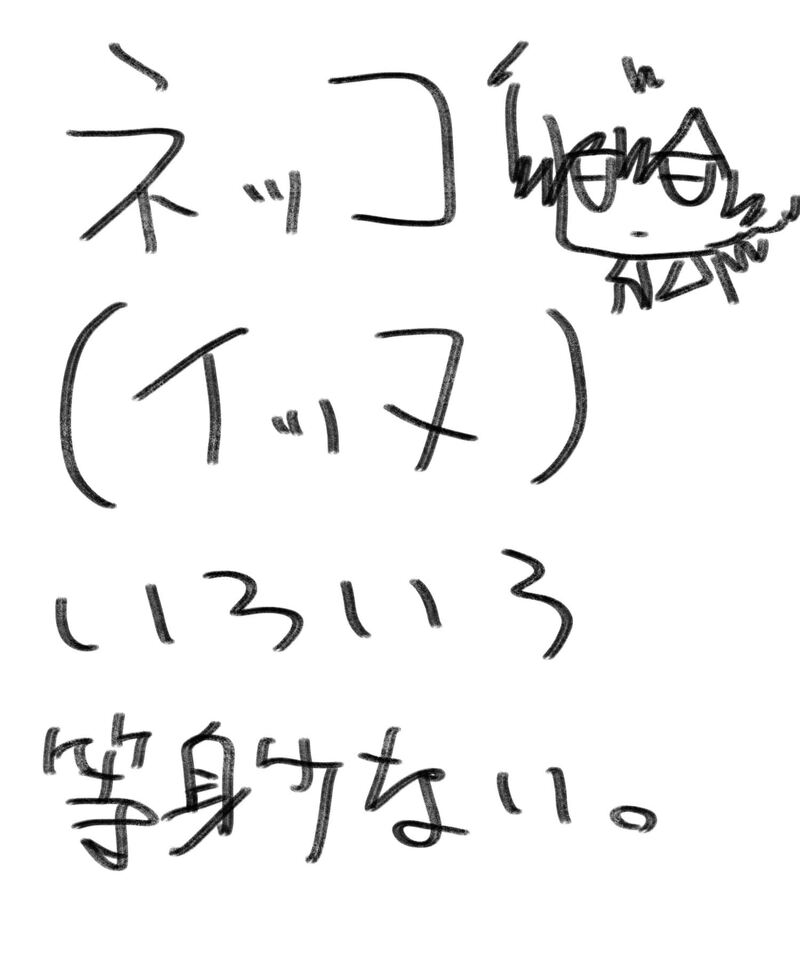 ネッコ
(イッヌ)
いろいろ
等身少ない。